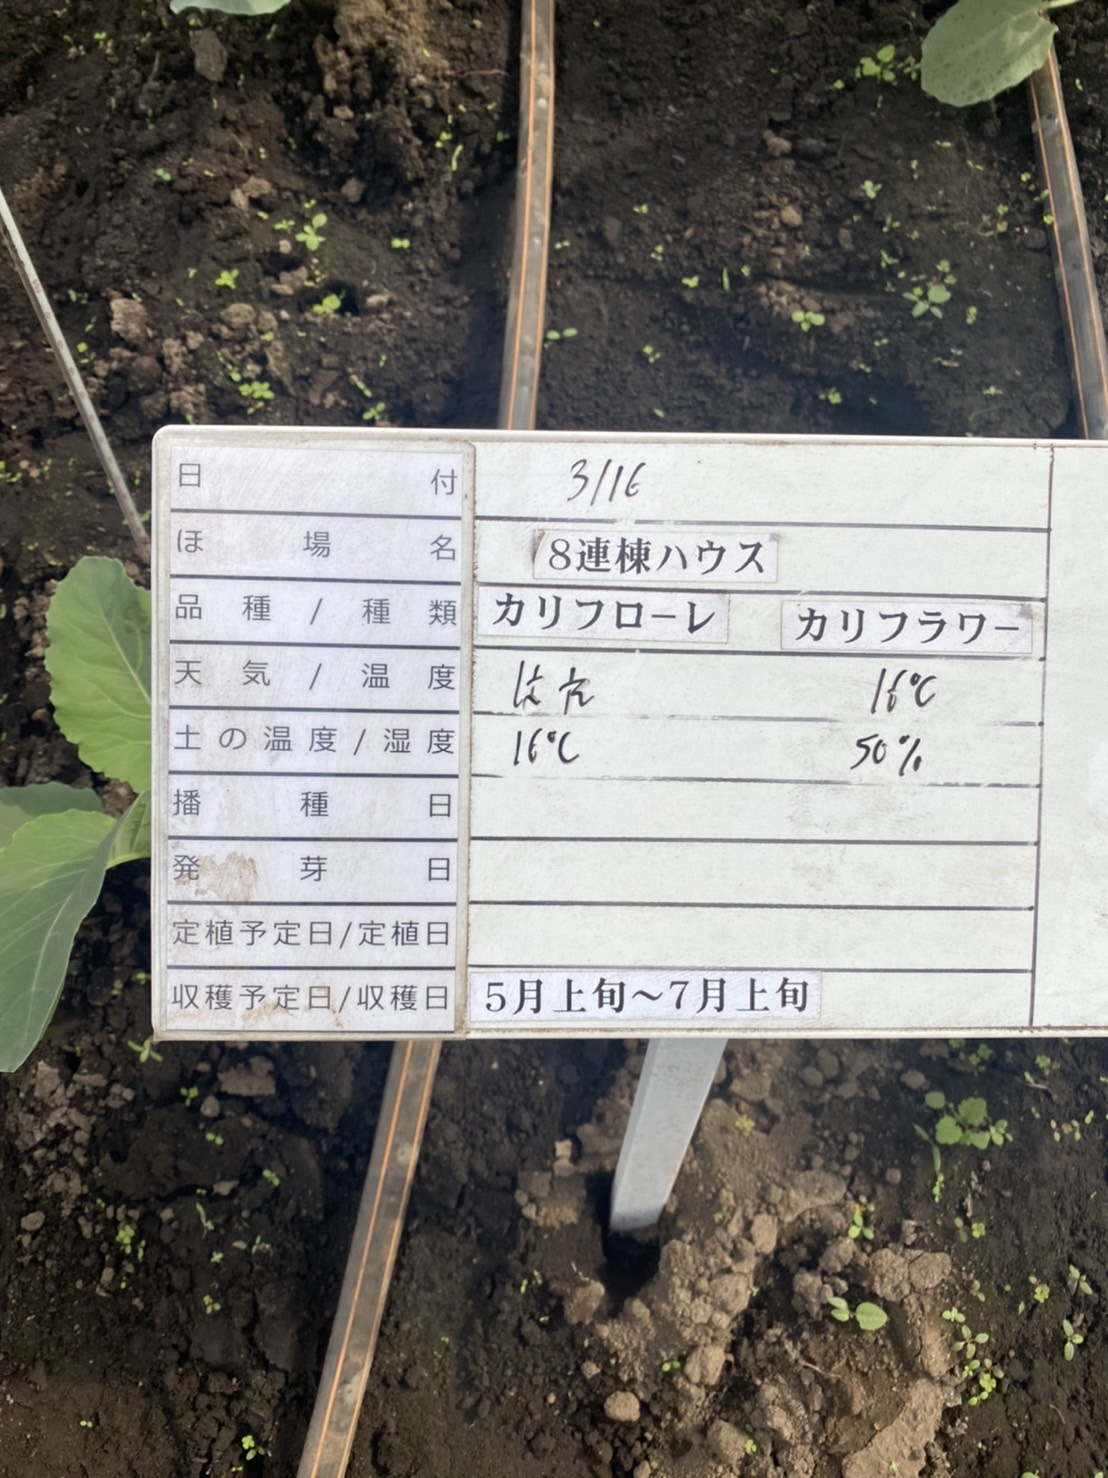 日付 3/16
ほ場名 8連棟ハウス
品種/種類 カリフローレ カリフラワー
天気/温度 16℃
土の温度/湿度 16℃ 50%
播種日
発芽日
定植予定日/定植日
収穫予定日/収穫日 5月上旬〜7月上旬